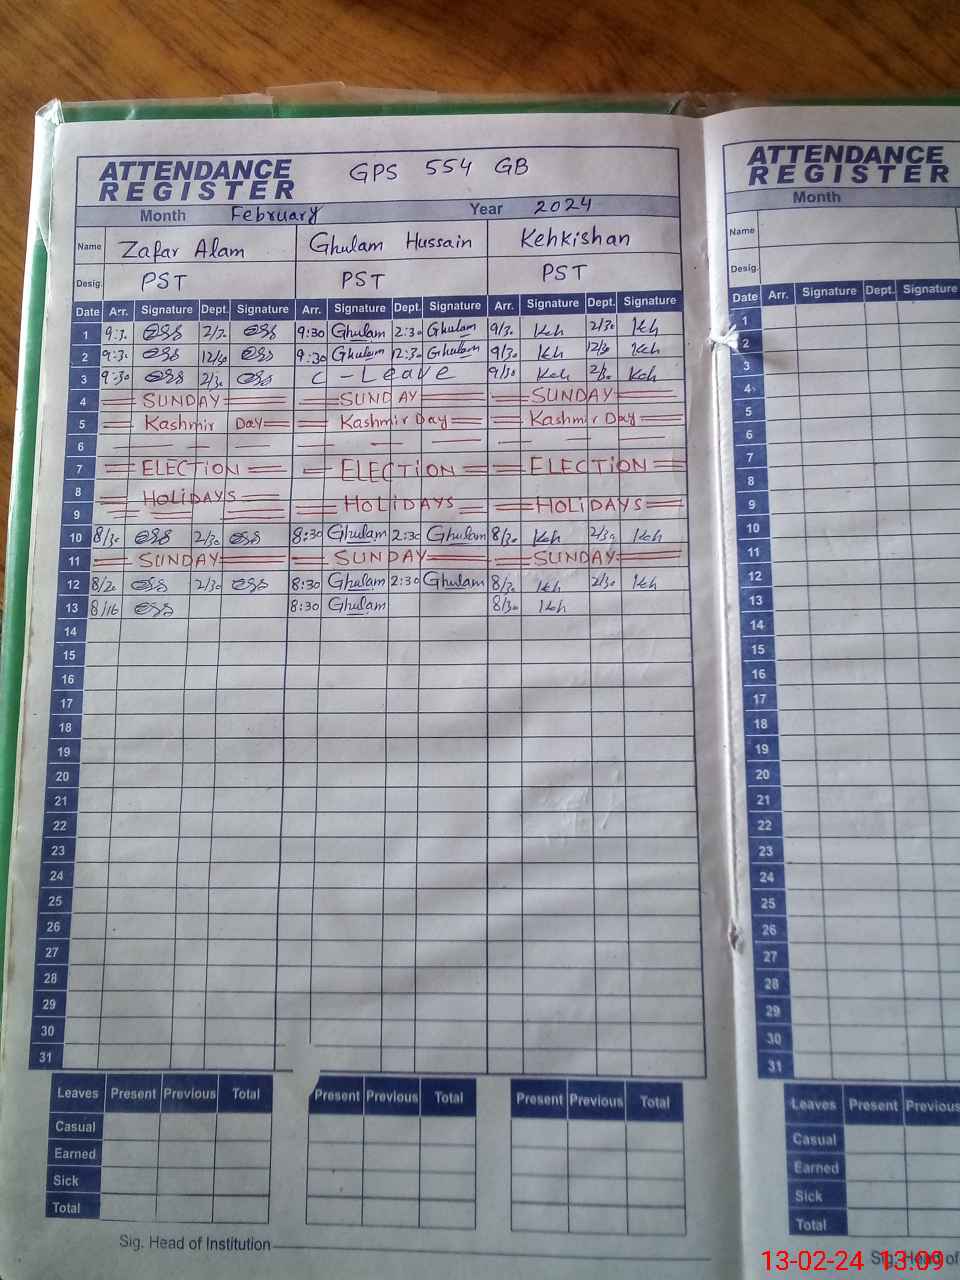 ATTENDANCE REGISTER GPS 554 GB
Month February Year 2024
Name Zafar Alam Ghulam Hussain Kehkishan
Desig. PST PST PST
Date Arr. Signature Dept. Signature Arr. Signature Dept. Signature Arr. Signature Dept. Signature
1 9:3. 2/3. 9:30 Ghulam 2:30 Ghulam 9/3. Keh 2/30 Keh
2 9:3. 12/30 9:30 Ghulam 12:30 Ghulam 9/30 Keh 12/30 Keh
3 9:30 2/30 C - Leave 9/30 Keh 2/30 Keh
4 SUNDAY SUNDAY SUNDAY
5 Kashmir Day Kashmir Day Kashmir Day
6
7 ELECTION ELECTION ELECTION
8 HOLIDAYS HOLIDAYS HOLIDAYS
9
10 8/30 2/30 8:30 Ghulam 2:30 Ghulam 8/30 Keh 2/30 Keh
11 SUNDAY SUNDAY SUNDAY
12 8/20 2/30 8:30 Ghulam 2:30 Ghulam 8/3. Keh 2/30 Keh
13 8/16 8:30 Ghulam 8/30 Keh
14
15
16
17
18
19
20
21
22
23
24
25
26
27
28
29
30
31
Leaves Present Previous Total Present Previous Total Present Previous Total
Casual
Earned
Sick
Total
Sig. Head of Institution
ATTENDANCE REGISTER
Month
Name
Desig.
Date Arr. Signature Dept. Signature
1
2
3
4
5
6
7
8
9
10
11
12
13
14
15
16
17
18
19
20
21
22
23
24
25
26
27
28
29
30
31
Leaves Present Previous
Casual
Earned
Sick
Total
Sig. Head of
13-02-24 13:09